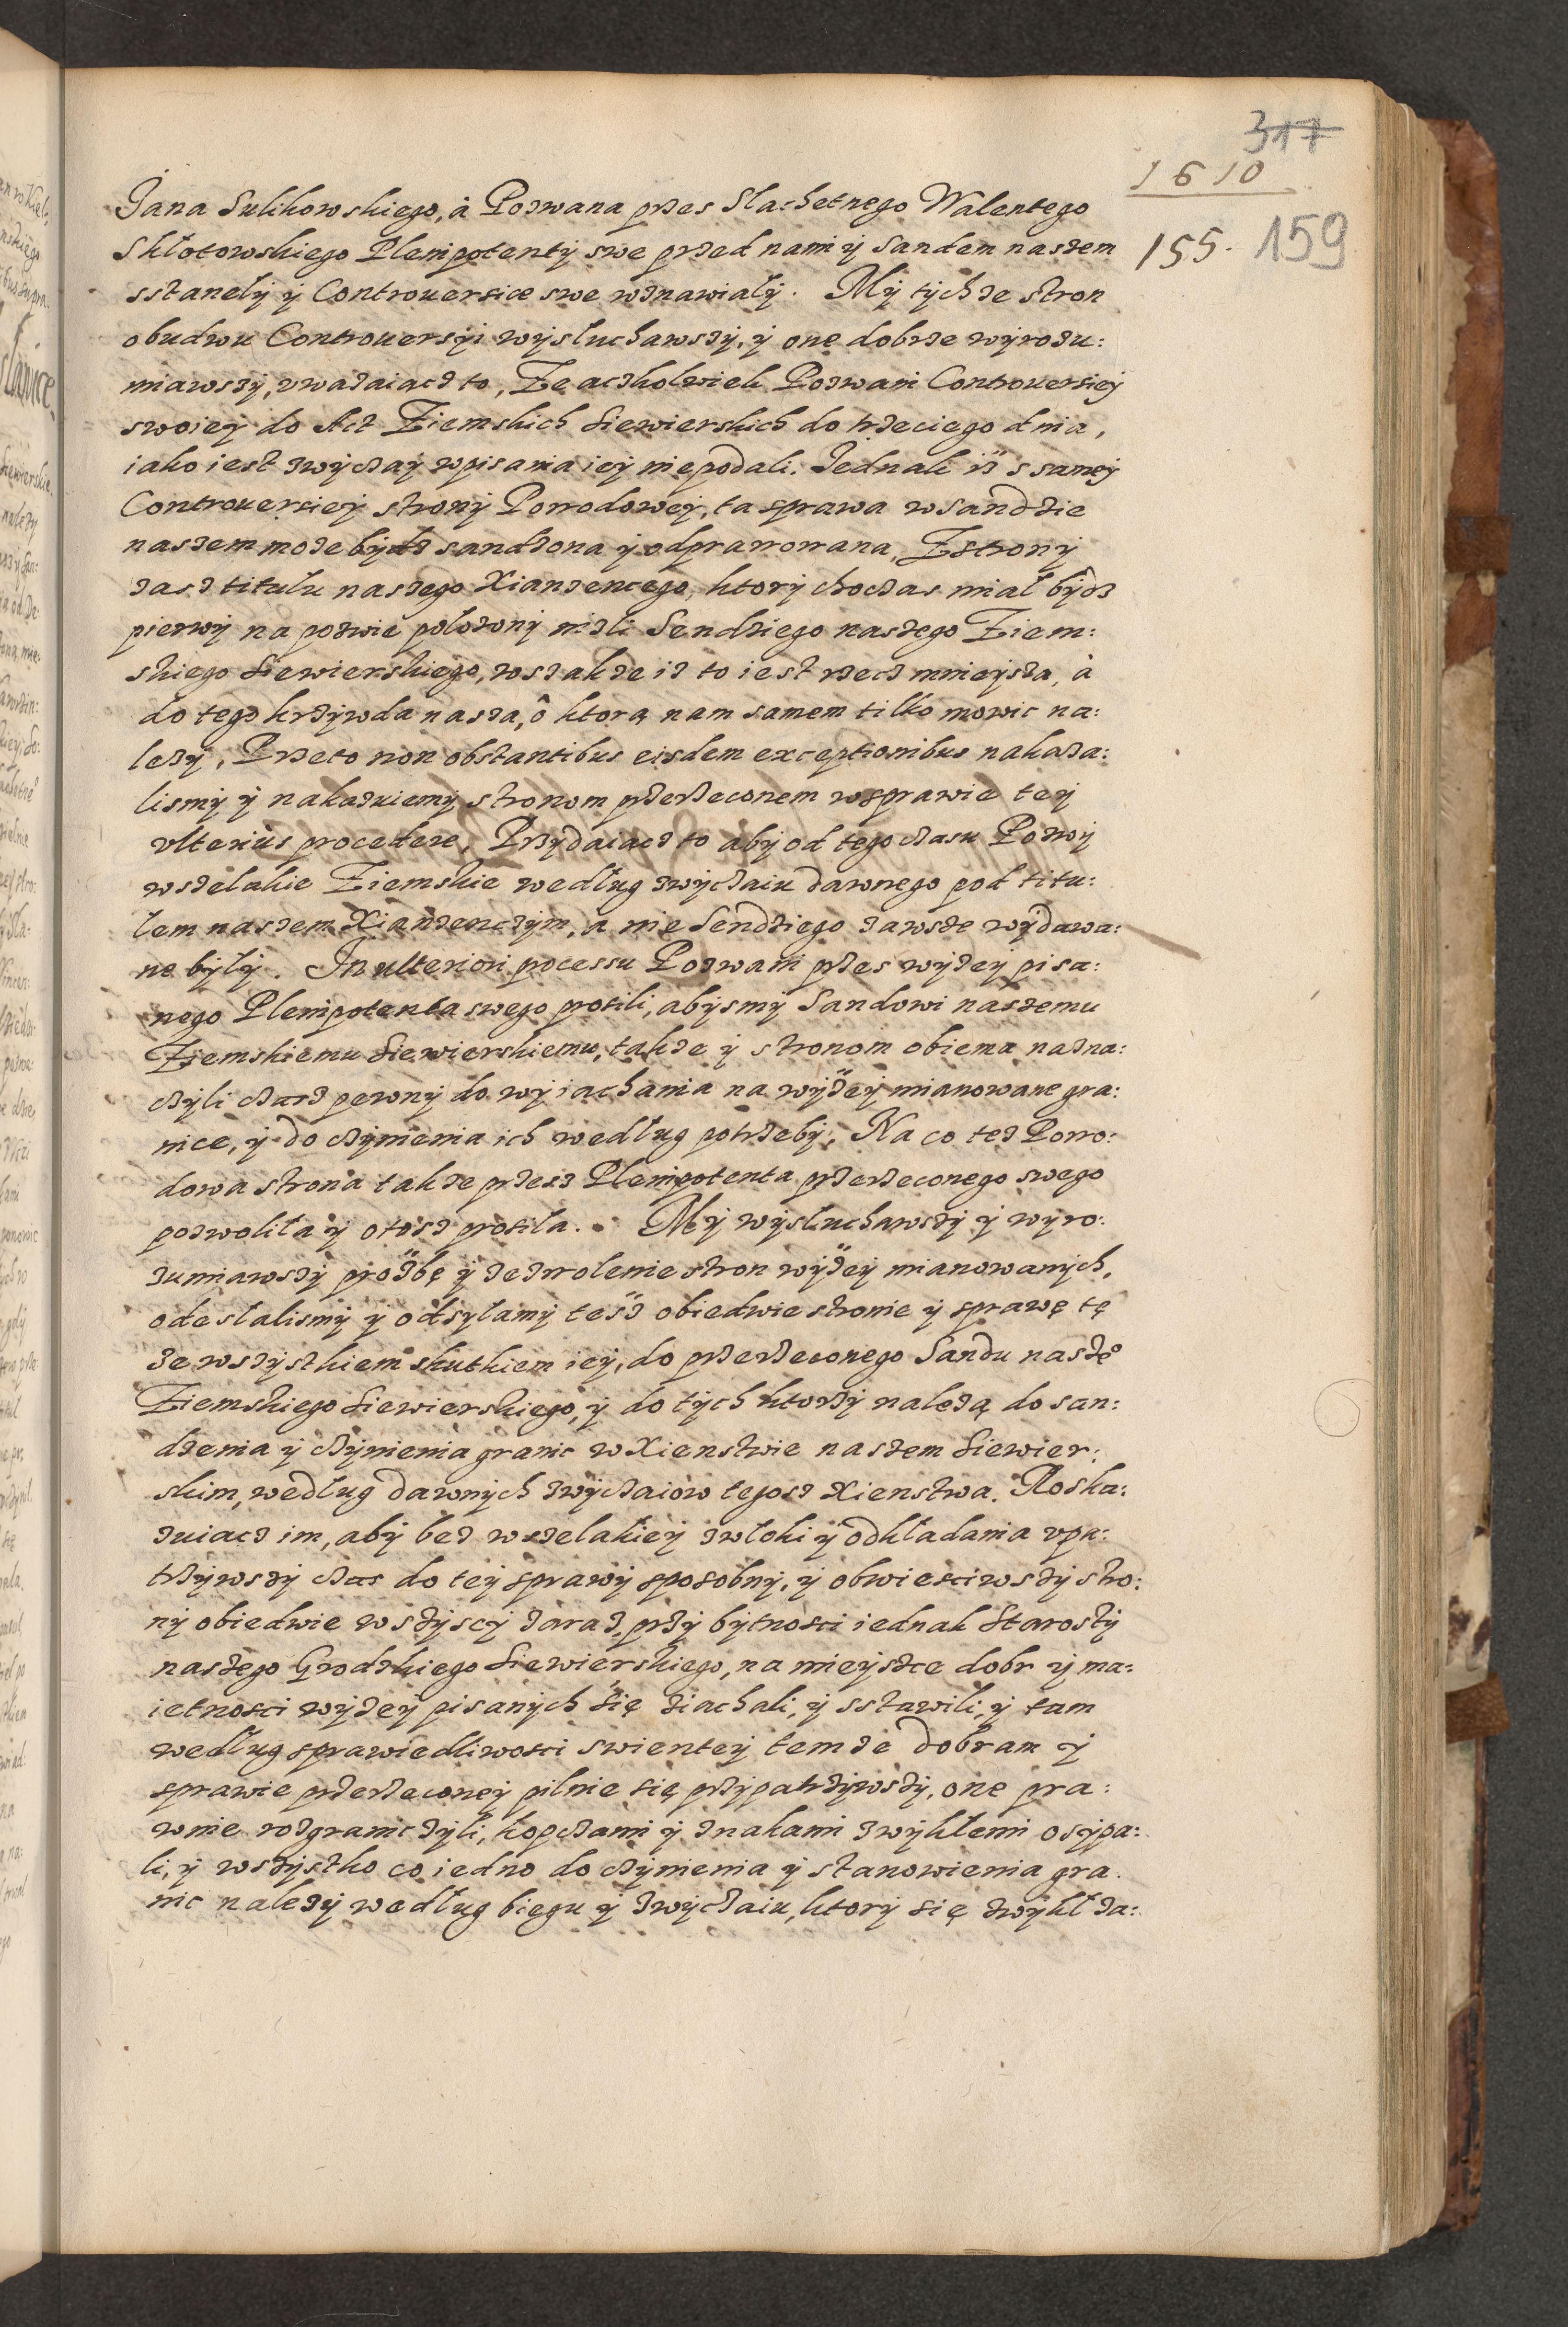 317
1610
155. 159
Jana Sulikowskiego, à Pozwana przes Slachetnego Walentego
Skłotowskiego Plenipotenty swe przed nami y Sandem naszem
sstanely y Controuersice swe wznawiały. My tychze stron
obudwu Controuersyi wysłuchawszy, y one dobrze wyrozu:
miawszy, vwazaiacz to, Ze aczkolwiek Pozwani Controuersiey
swoiey do Act Ziemskich Siewierskich do trzeciego dnia,
iako iest zwyczay wpisania iey niepodali. Jednak iż s samey
Controuersiey strony Powodowey, ta sprawa w Sandzie
naszem moze bydz sandzona y odprawowana, Z strony
zasz titulu naszego Xianzencego, ktory choczas miał bydz
pierwy na pozwie położony nizli Sendziego naszego Ziem:
skiego Siewierskiego, wszakze iz to iest rzecz mnieysza, à
do tego krzywda nasza, ô ktorą nam samem tilko mowic na:
lezy, Przeto non obstantibus eisdem exceptionibus nakaza:
lismy y nakazuiemy stronom przerzeconem w sprawie tey
vlterius procedere, Przydaiacz to aby od tego czasu Pozwy
wszelakie Ziemskie według zwyczaiu dawnego pod titu:
lem naszem Xianzenczym, a nie Sendziego zawsze wydawa:
ne były. In ulteriori processu Pozwani przes wyzey pisa:
nego Plenipotenta swego prosili, abysmy Sandowi naszemu
Ziemskiemu Siewierskiemu, takze y stronom obiema nazna:
czyli czasz pewny do wyiachania na wyżey mianowane gra:
nice, y do czynienia ich według potrzeby, Na co tez Powo:
dowa strona takze przesz Plenipotenta przerzeconego swego
pozwoliła y otosz prosiła. My wysłuchawszy y wyro:
zumiawszy prożbę y zezwolenie stron wyżey mianowanych,
odesłalismy y odsyłamy tesz obiedwie stronie y sprawę tę
ze wszystkiem skutkiem iey, do przerzeconego Sandu naszeo
Ziemskiego Siewierskiego, y do tych ktorzy należą do san:
dzenia y czynienia granic w Xienstwie naszem Siewier:
skim, według dawnych zwyczaiow tegosz Xienstwa. Roska:
zuiacz im, aby bez wszelakiey zwłoki y odkładania vpa:
trzywszy czas do tey sprawy sposobny, y obwiesciwszy stro:
ny obiedwie wszyscy zaraz, przy bytnosci iednak Starosty
naszego Grodzkiego Siewierskiego, na mieyszce dobr y ma:
ietnosci wyzey pisanych się ziachali, y sstawili, y tam
według sprawiedliwosci swientey temze dobram y
sprawie przerzeconey pilnie się przypatrzywszy, one pra:
wnie rozgraniczyli, kopczami y znakami zwykłemi osypa:
li, y wszystko co iedno do czynienia y stanowienia gra:
nic nalezy według biegu y zwyczaiu, ktory się zwykł za: